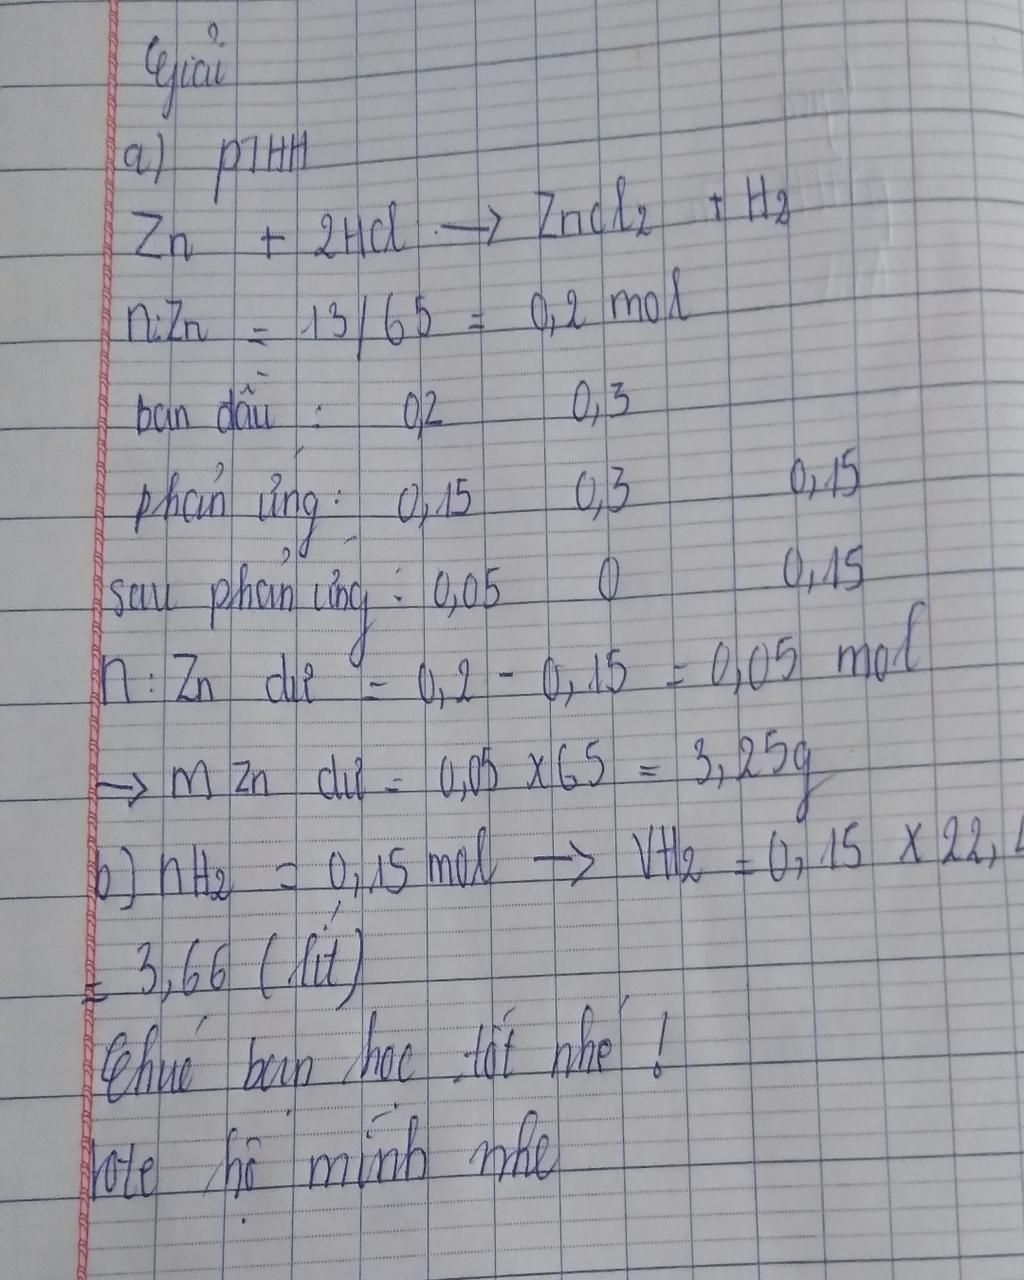 Giải
a) PTHH
Zn + 2HCl → ZnCl2 + H2
n:Zn = 13/65 = 0,2 mol
ban đầu : 0,2 0,3
phản ứng : 0,15 0,3 0,15
sau phản ứng : 0,05 0 0,15
n : Zn dư = 0,2 - 0,15 = 0,05 mol
→ m Zn dư = 0,05 x 65 = 3,25g
b) nH2 = 0,15 mol → VH2 = 0,15 x 22,4
= 3,66 (lít)
Chúc bạn học tốt nhé !
Vote hộ mình nhé